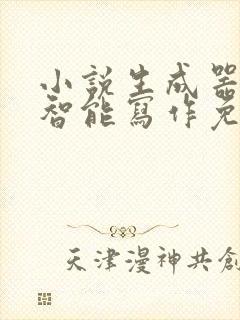 小説生成器
智能寫作免
天津漫神共創